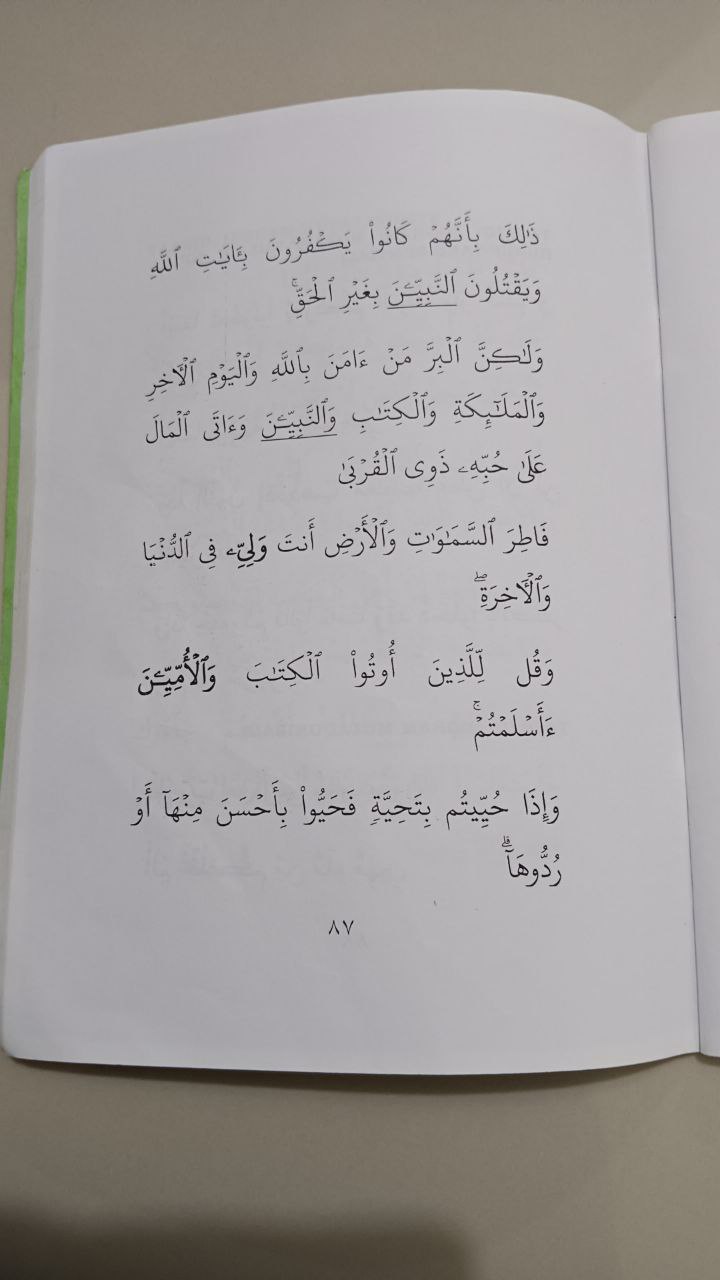 ذَٰلِكَ بِأَنَّهُمْ كَانُوا۟ يَكْفُرُونَ بِـَٔايَـٰتِ ٱللَّهِ
وَيَقْتُلُونَ ٱلنَّبِيِّـۧنَ بِغَيْرِ ٱلْحَقِّ ۚ
وَلَـٰكِنَّ ٱلْبِرَّ مَنْ ءَامَنَ بِٱللَّهِ وَٱلْيَوْمِ ٱلْـَٔاخِرِ
وَٱلْمَلَـٰٓئِكَةِ وَٱلْكِتَـٰبِ وَٱلنَّبِيِّـۧنَ وَءَاتَى ٱلْمَالَ
عَلَىٰ حُبِّهِۦ ذَوِى ٱلْقُرْبَىٰ
فَاطِرَ ٱلسَّمَـٰوَٰتِ وَٱلْأَرْضِ أَنتَ وَلِىِّۦ فِى ٱلدُّنْيَا
وَٱلْـَٔاخِرَةِ ۖ
وَقُل لِّلَّذِينَ أُوتُوا۟ ٱلْكِتَـٰبَ وَٱلْأُمِّيِّـۧنَ
ءَأَسْلَمْتُمْ ۚ
وَإِذَا حُيِّيتُم بِتَحِيَّةٍ فَحَيُّوا۟ بِأَحْسَنَ مِنْهَآ أَوْ
رُدُّوهَآ ۗ
٨٧